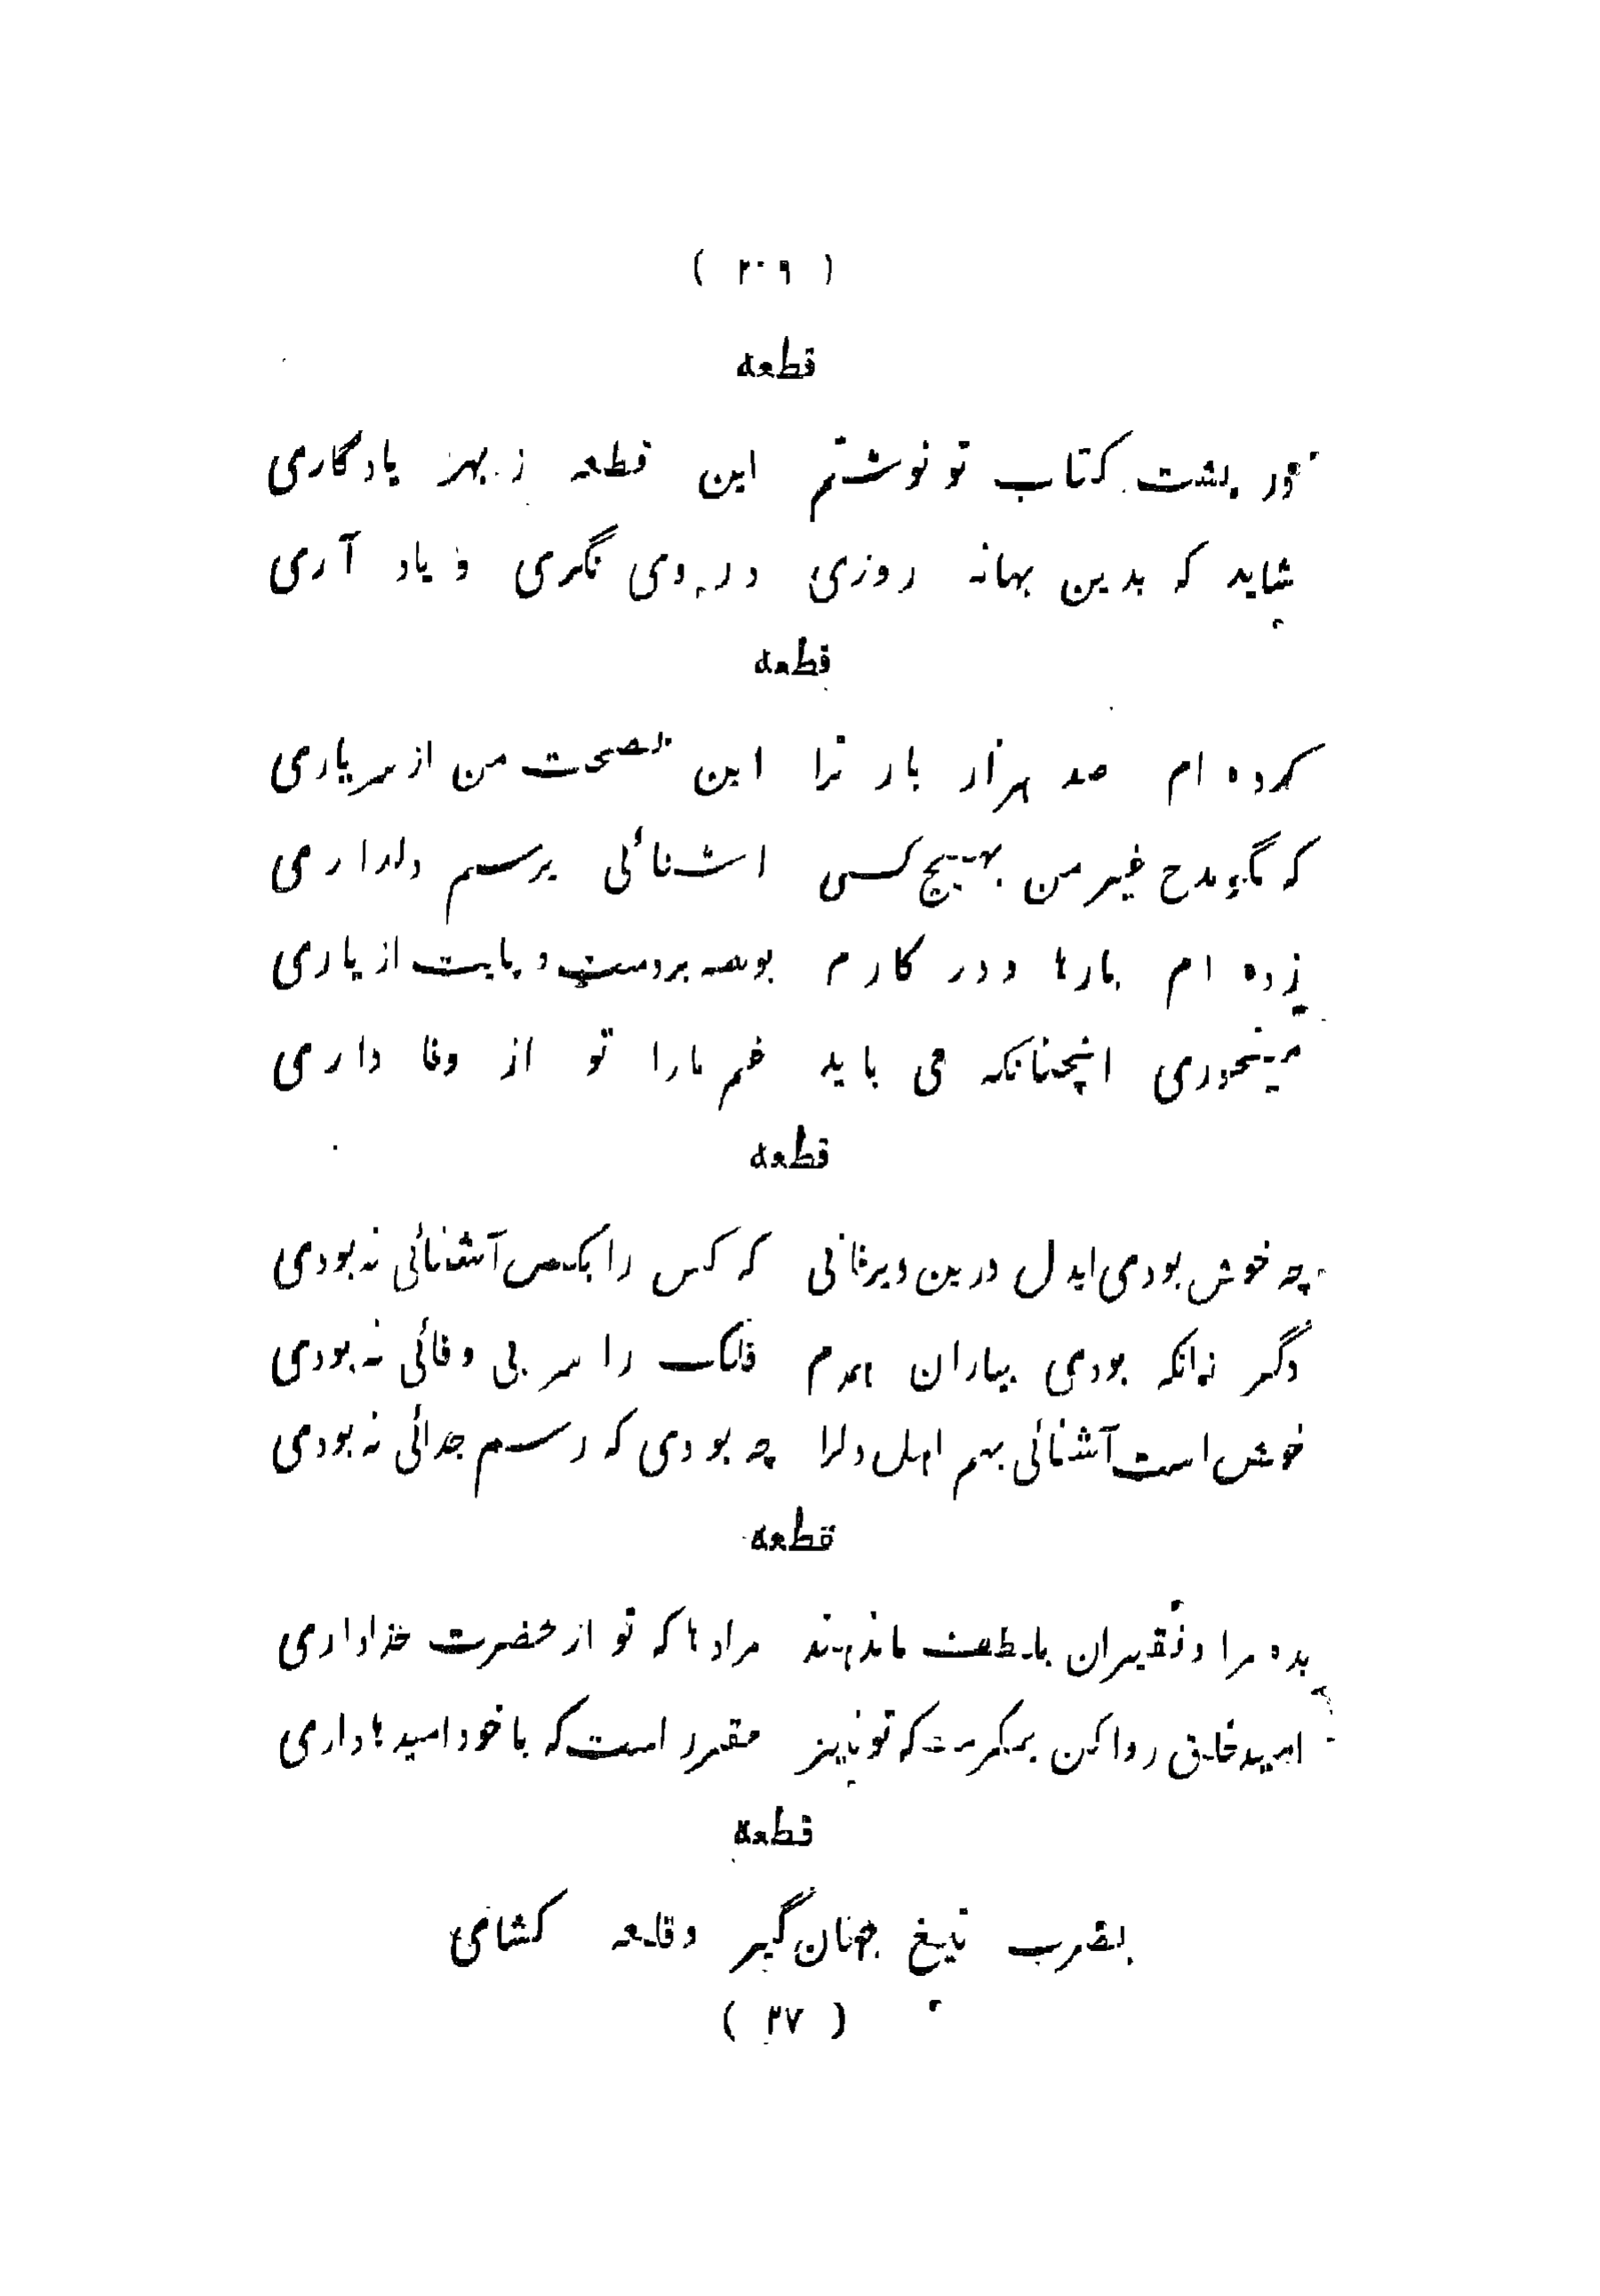 ( ۲۰۹ )
قطعه
در پشت کتاب تو نوشتم این قطعه ز بهر یادگاری
شاید که بدین بهانه روزی در وی نگری و یاد آری
قطعه
کرده ام صد هزار بار ترا این نصیحت من از سر یاری
که مگو مدح غیر من بهیچ کسی اشنائی برسم دلداری
زده ام بارها و در کارم بوسه بر دست و پایت از یاری
میخوری اینچنانکه می باید غم مارا تو از وفا داری
قطعه
چه خوش بودی ایدل درین دیر فانی که کس را بکس آشنائی نه بودی
دگر زانکه بودی بیاران همدم فلک را سر بی وفائی نه بودی
خوش است آشنائی بهم اهل دلرا چه بودی که رسم جدائی نه بودی
قطعه
بده مراد فقیران بلطف مراد ها که تو از حضرت خدا داری
امید خلق روا کن بمکرمت که تو نیز مقرر است که با خود امید ها داری
قطعه
بضرب تیغ جهان گیر و قلعه کشای
( ۲۷ )